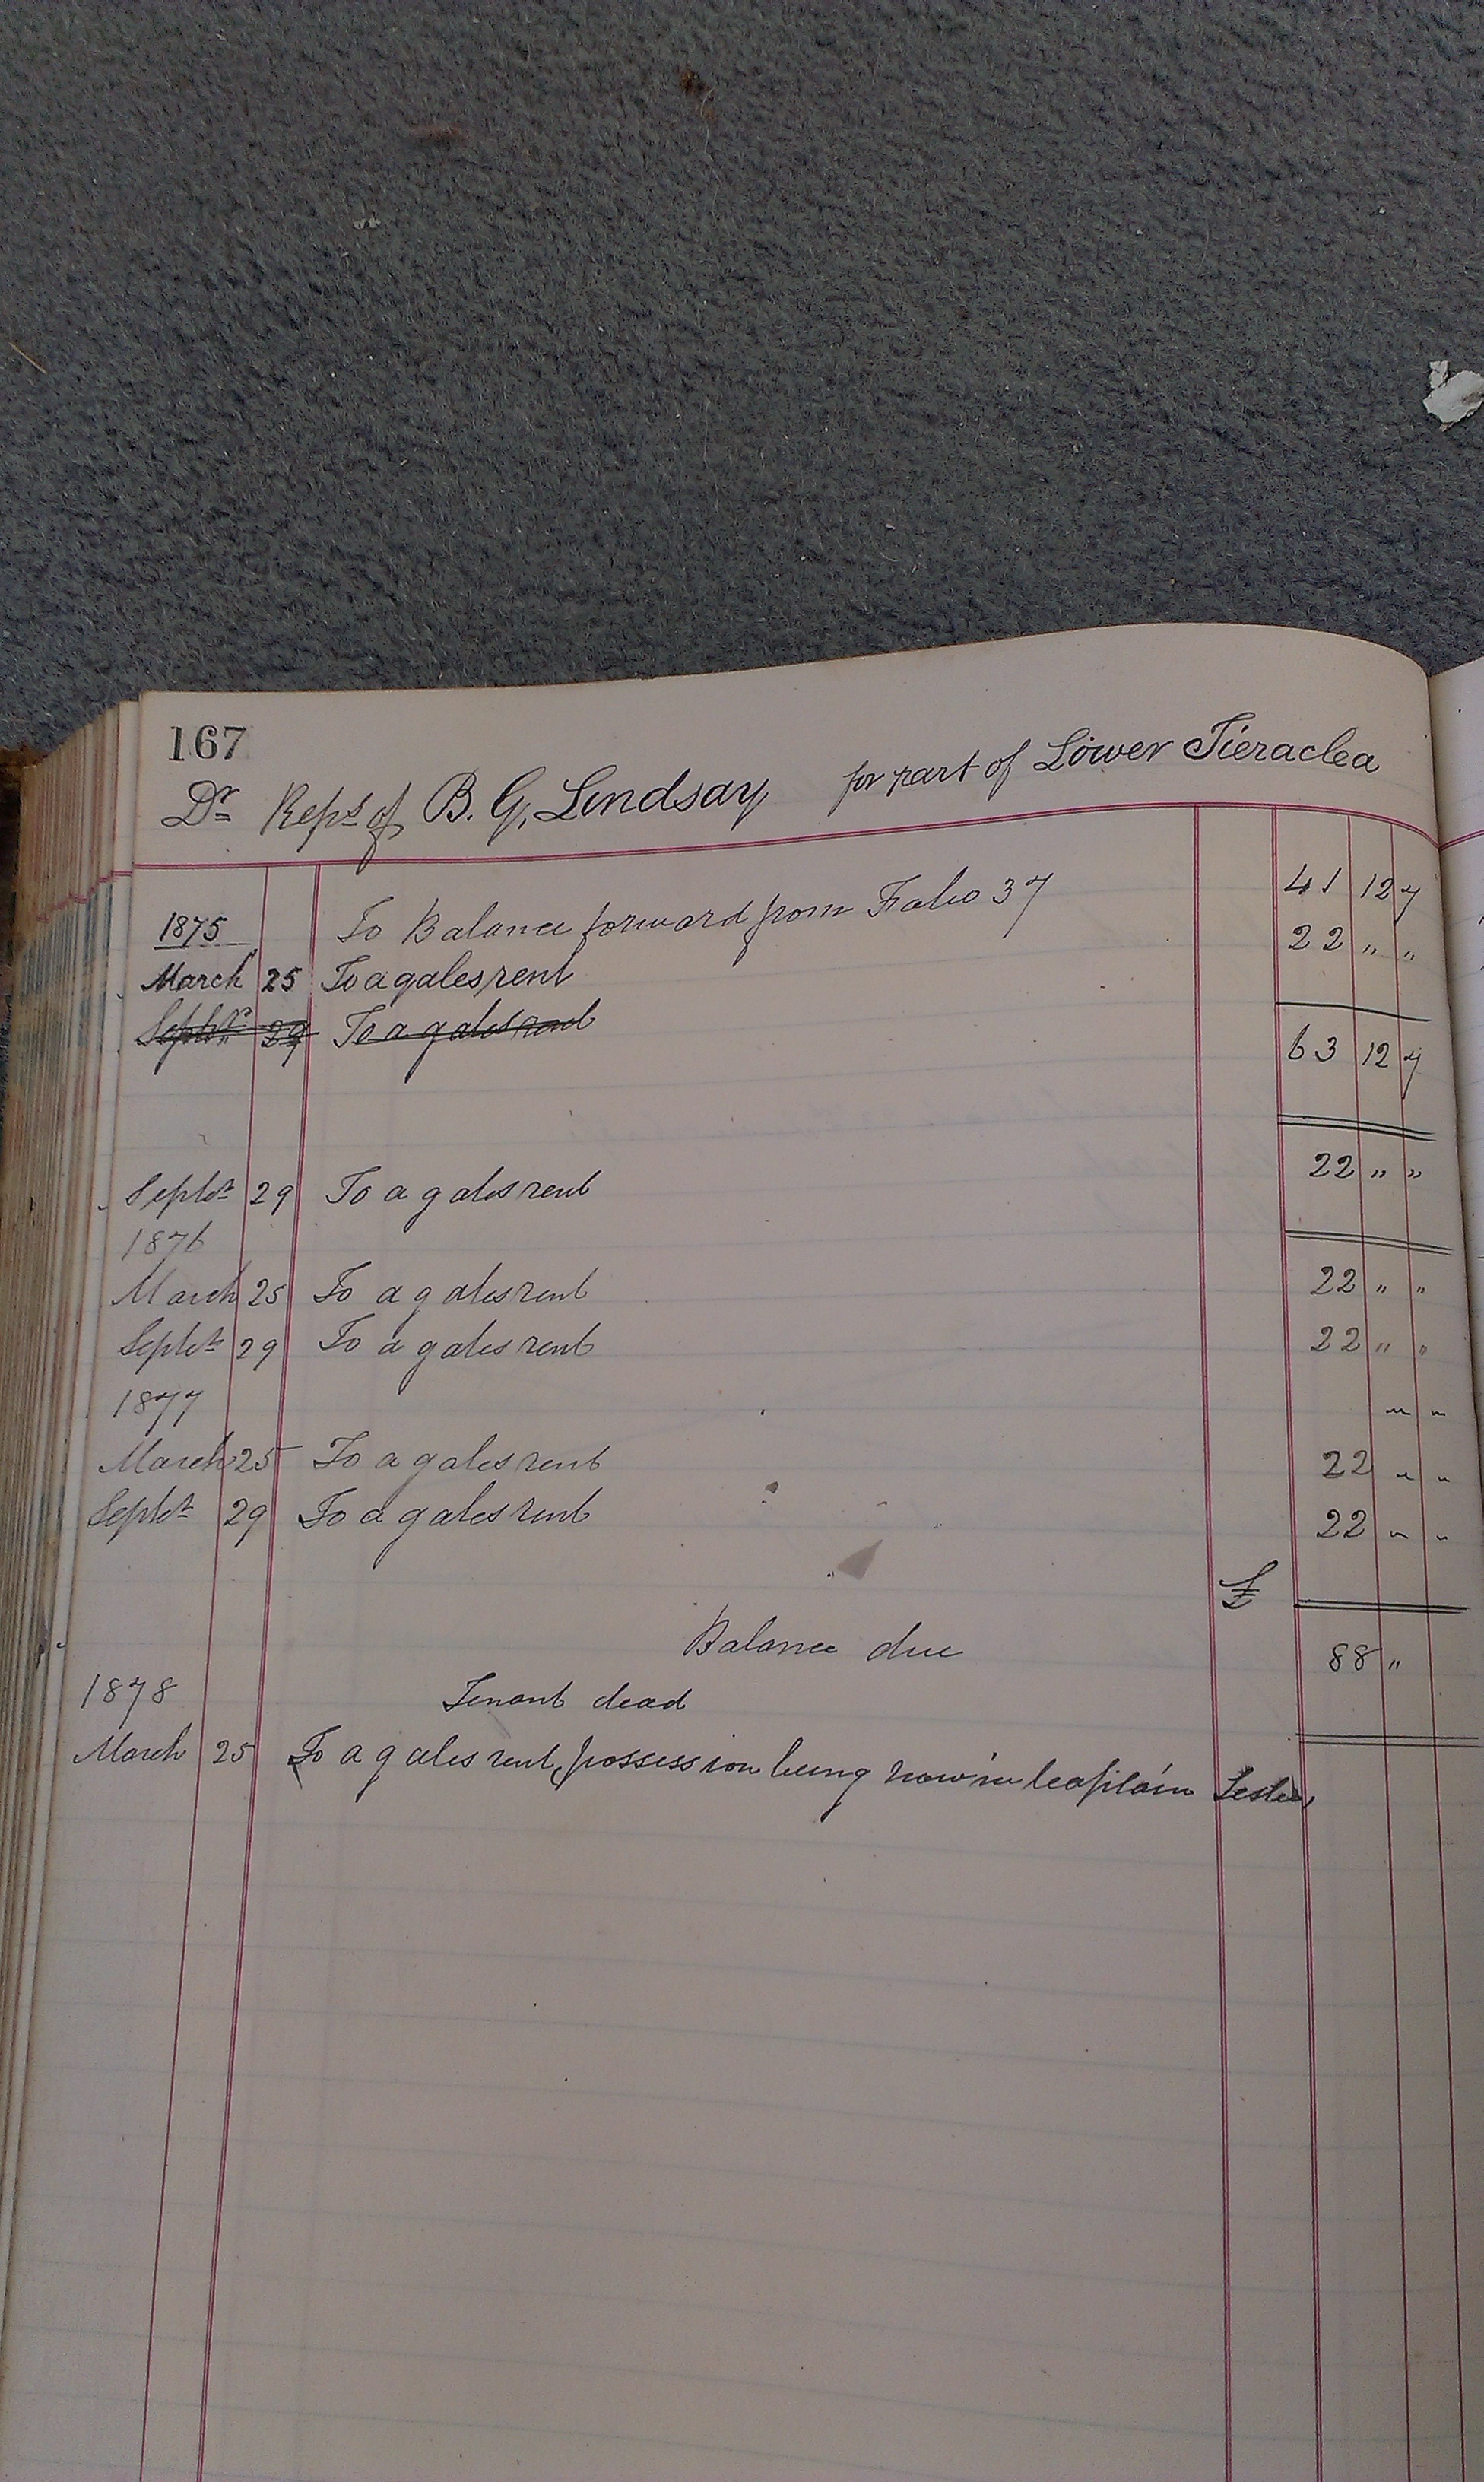 167
Dr Reps of B. G. Lindsay for part of Lower Tieraclea
1875 To Balance forward from Folio 37 41 12 7
March 25 To a gales rent 22 " "
Septr 29 To a gales rent
63 12 7
Septr 29 To a gales rent 22 " "
1876
March 25 To a gales rent 22 " "
Septr 29 To a gales rent 22 " "
1877 " "
March 25 To a gales rent 22 " "
Septr 29 To a gales rent 22 " "
£
Balance due 88 "
1878 Tenant dead
March 25 To a gales rent, possession being now in Captain Leslie,